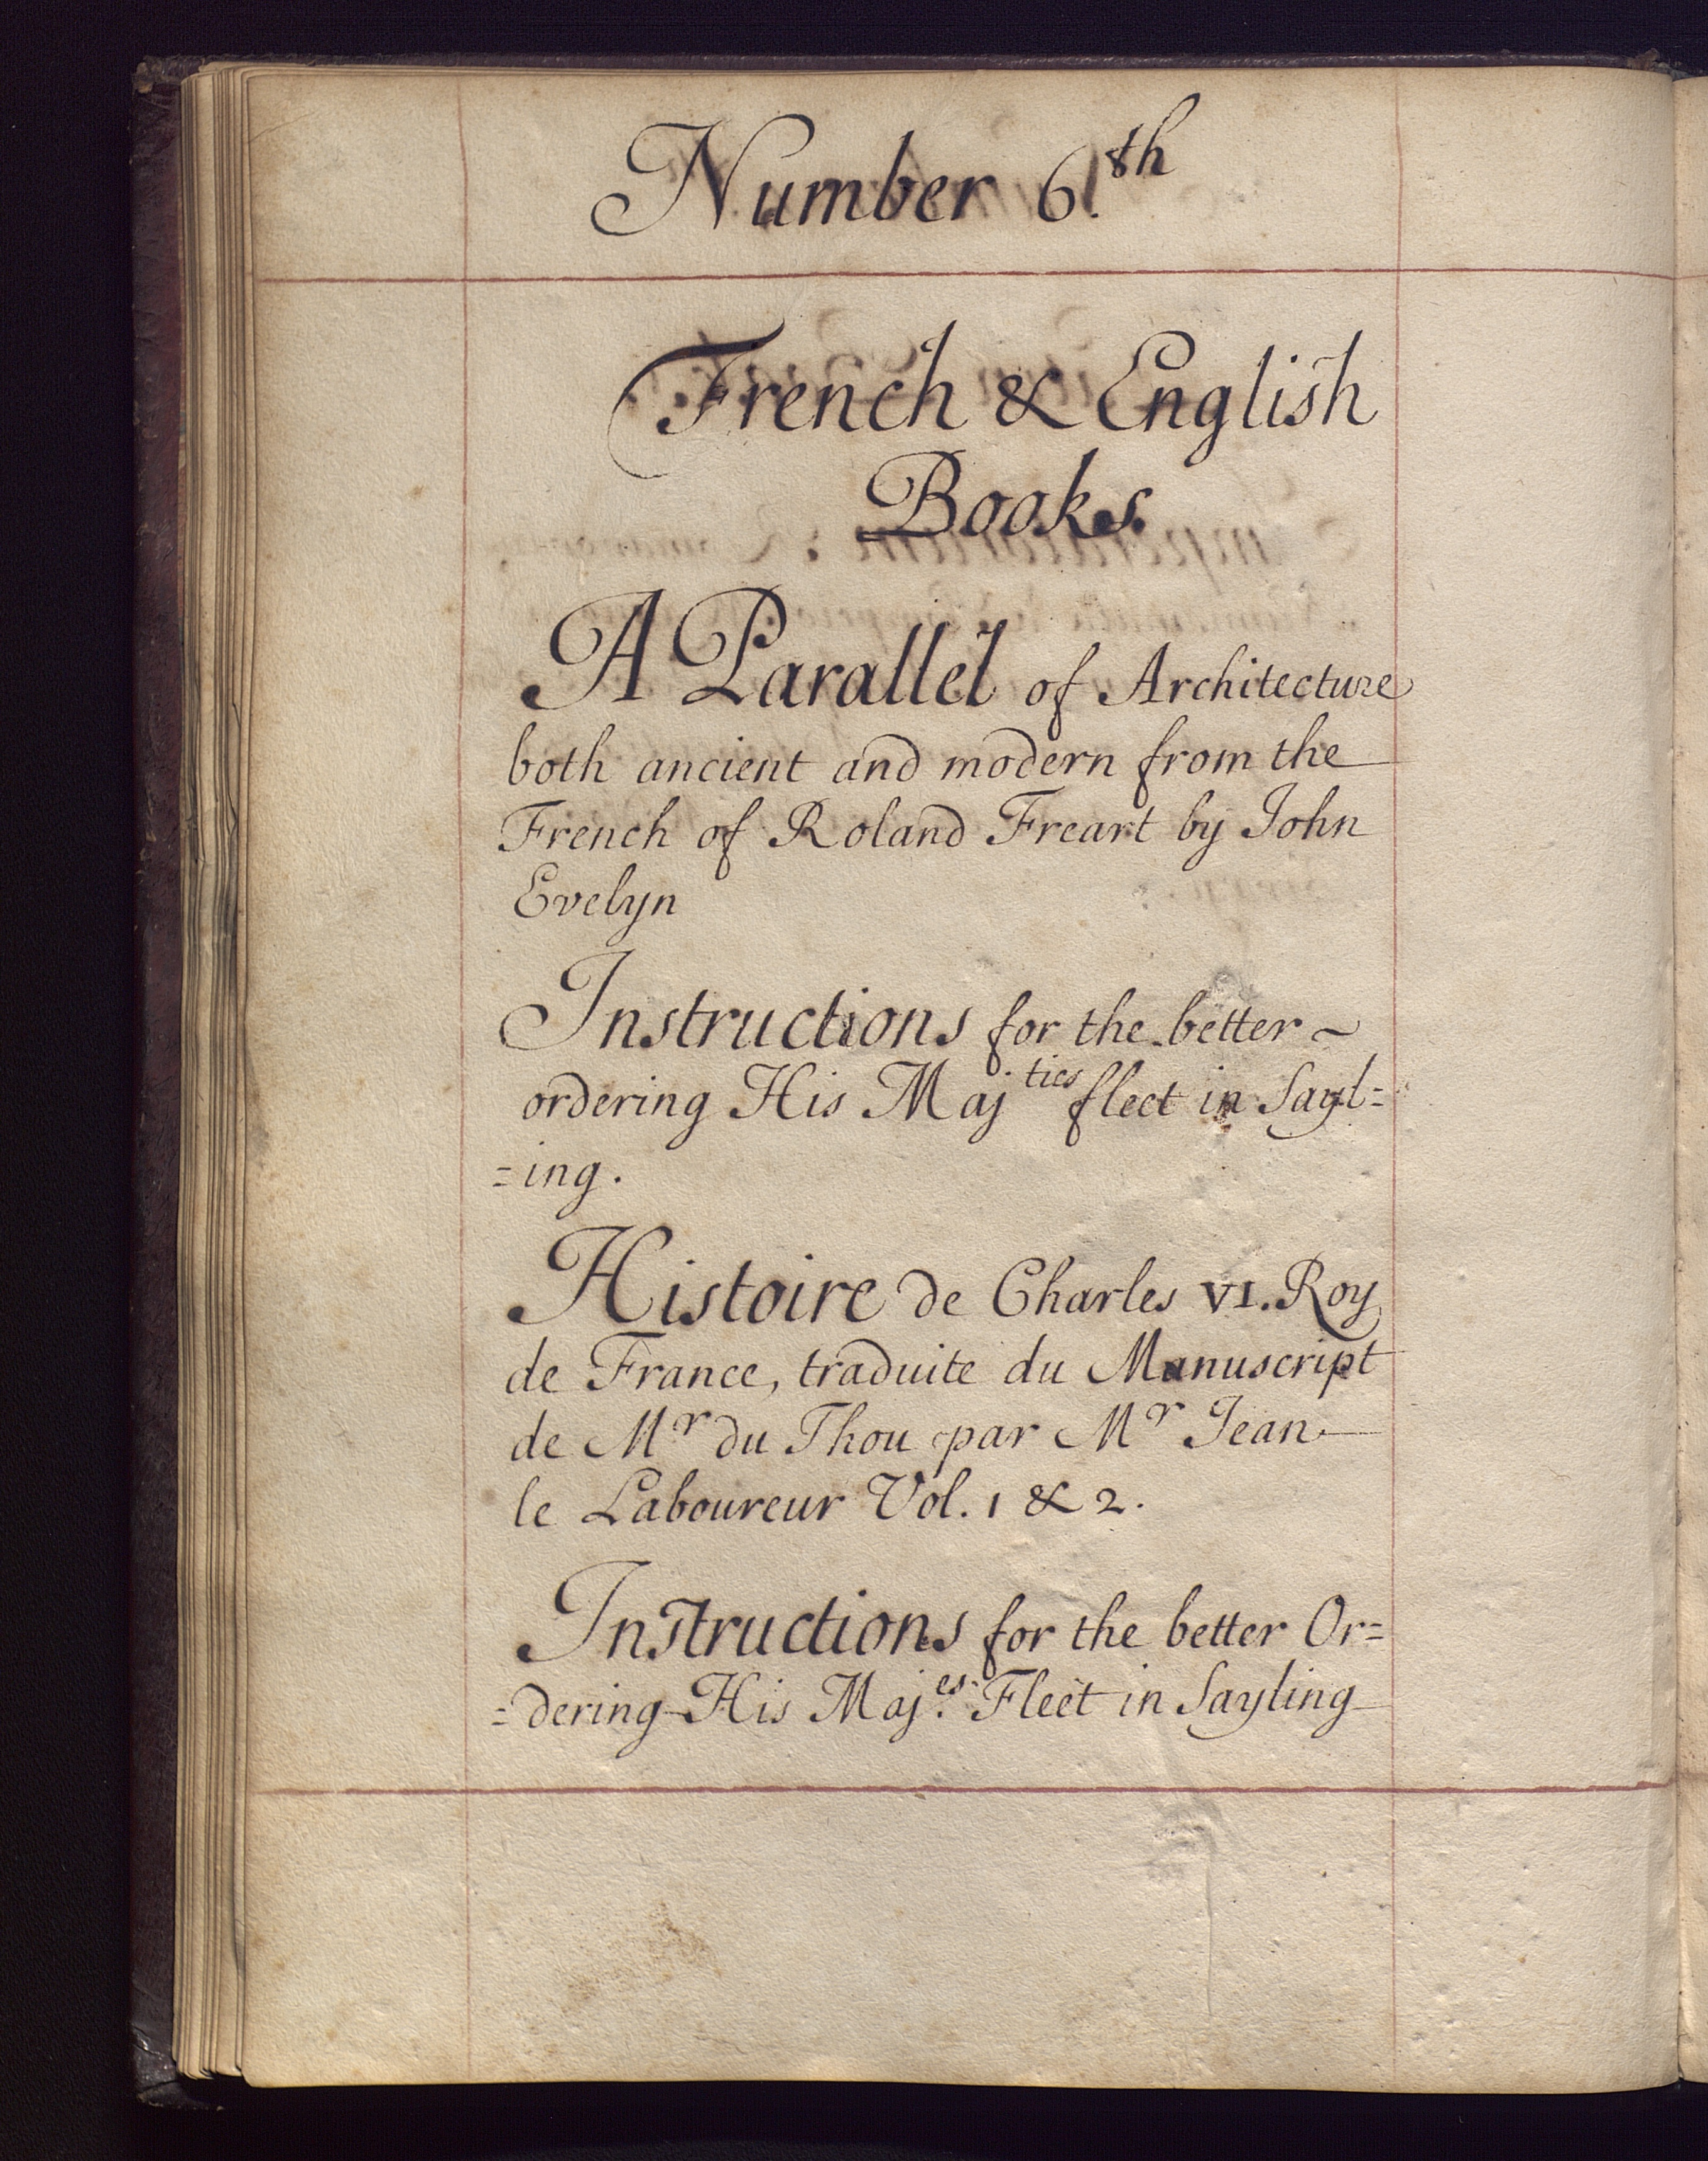 Number 6.th
French & English
Books.
A Parallel of Architecture
both ancient and modern from the
French of Roland Freart by John
Evelyn
Instructions for the better ~
ordering His Maj ties fleet in Sayl=
=ing.
Histoire de Charles VI. Roy
de France, traduite du Manuscript
de Mr du Thou par Mr Jean
le Laboureur Vol. 1 & 2.
Instructions for the better Or=
=dering His Maj.es Fleet in Sayling